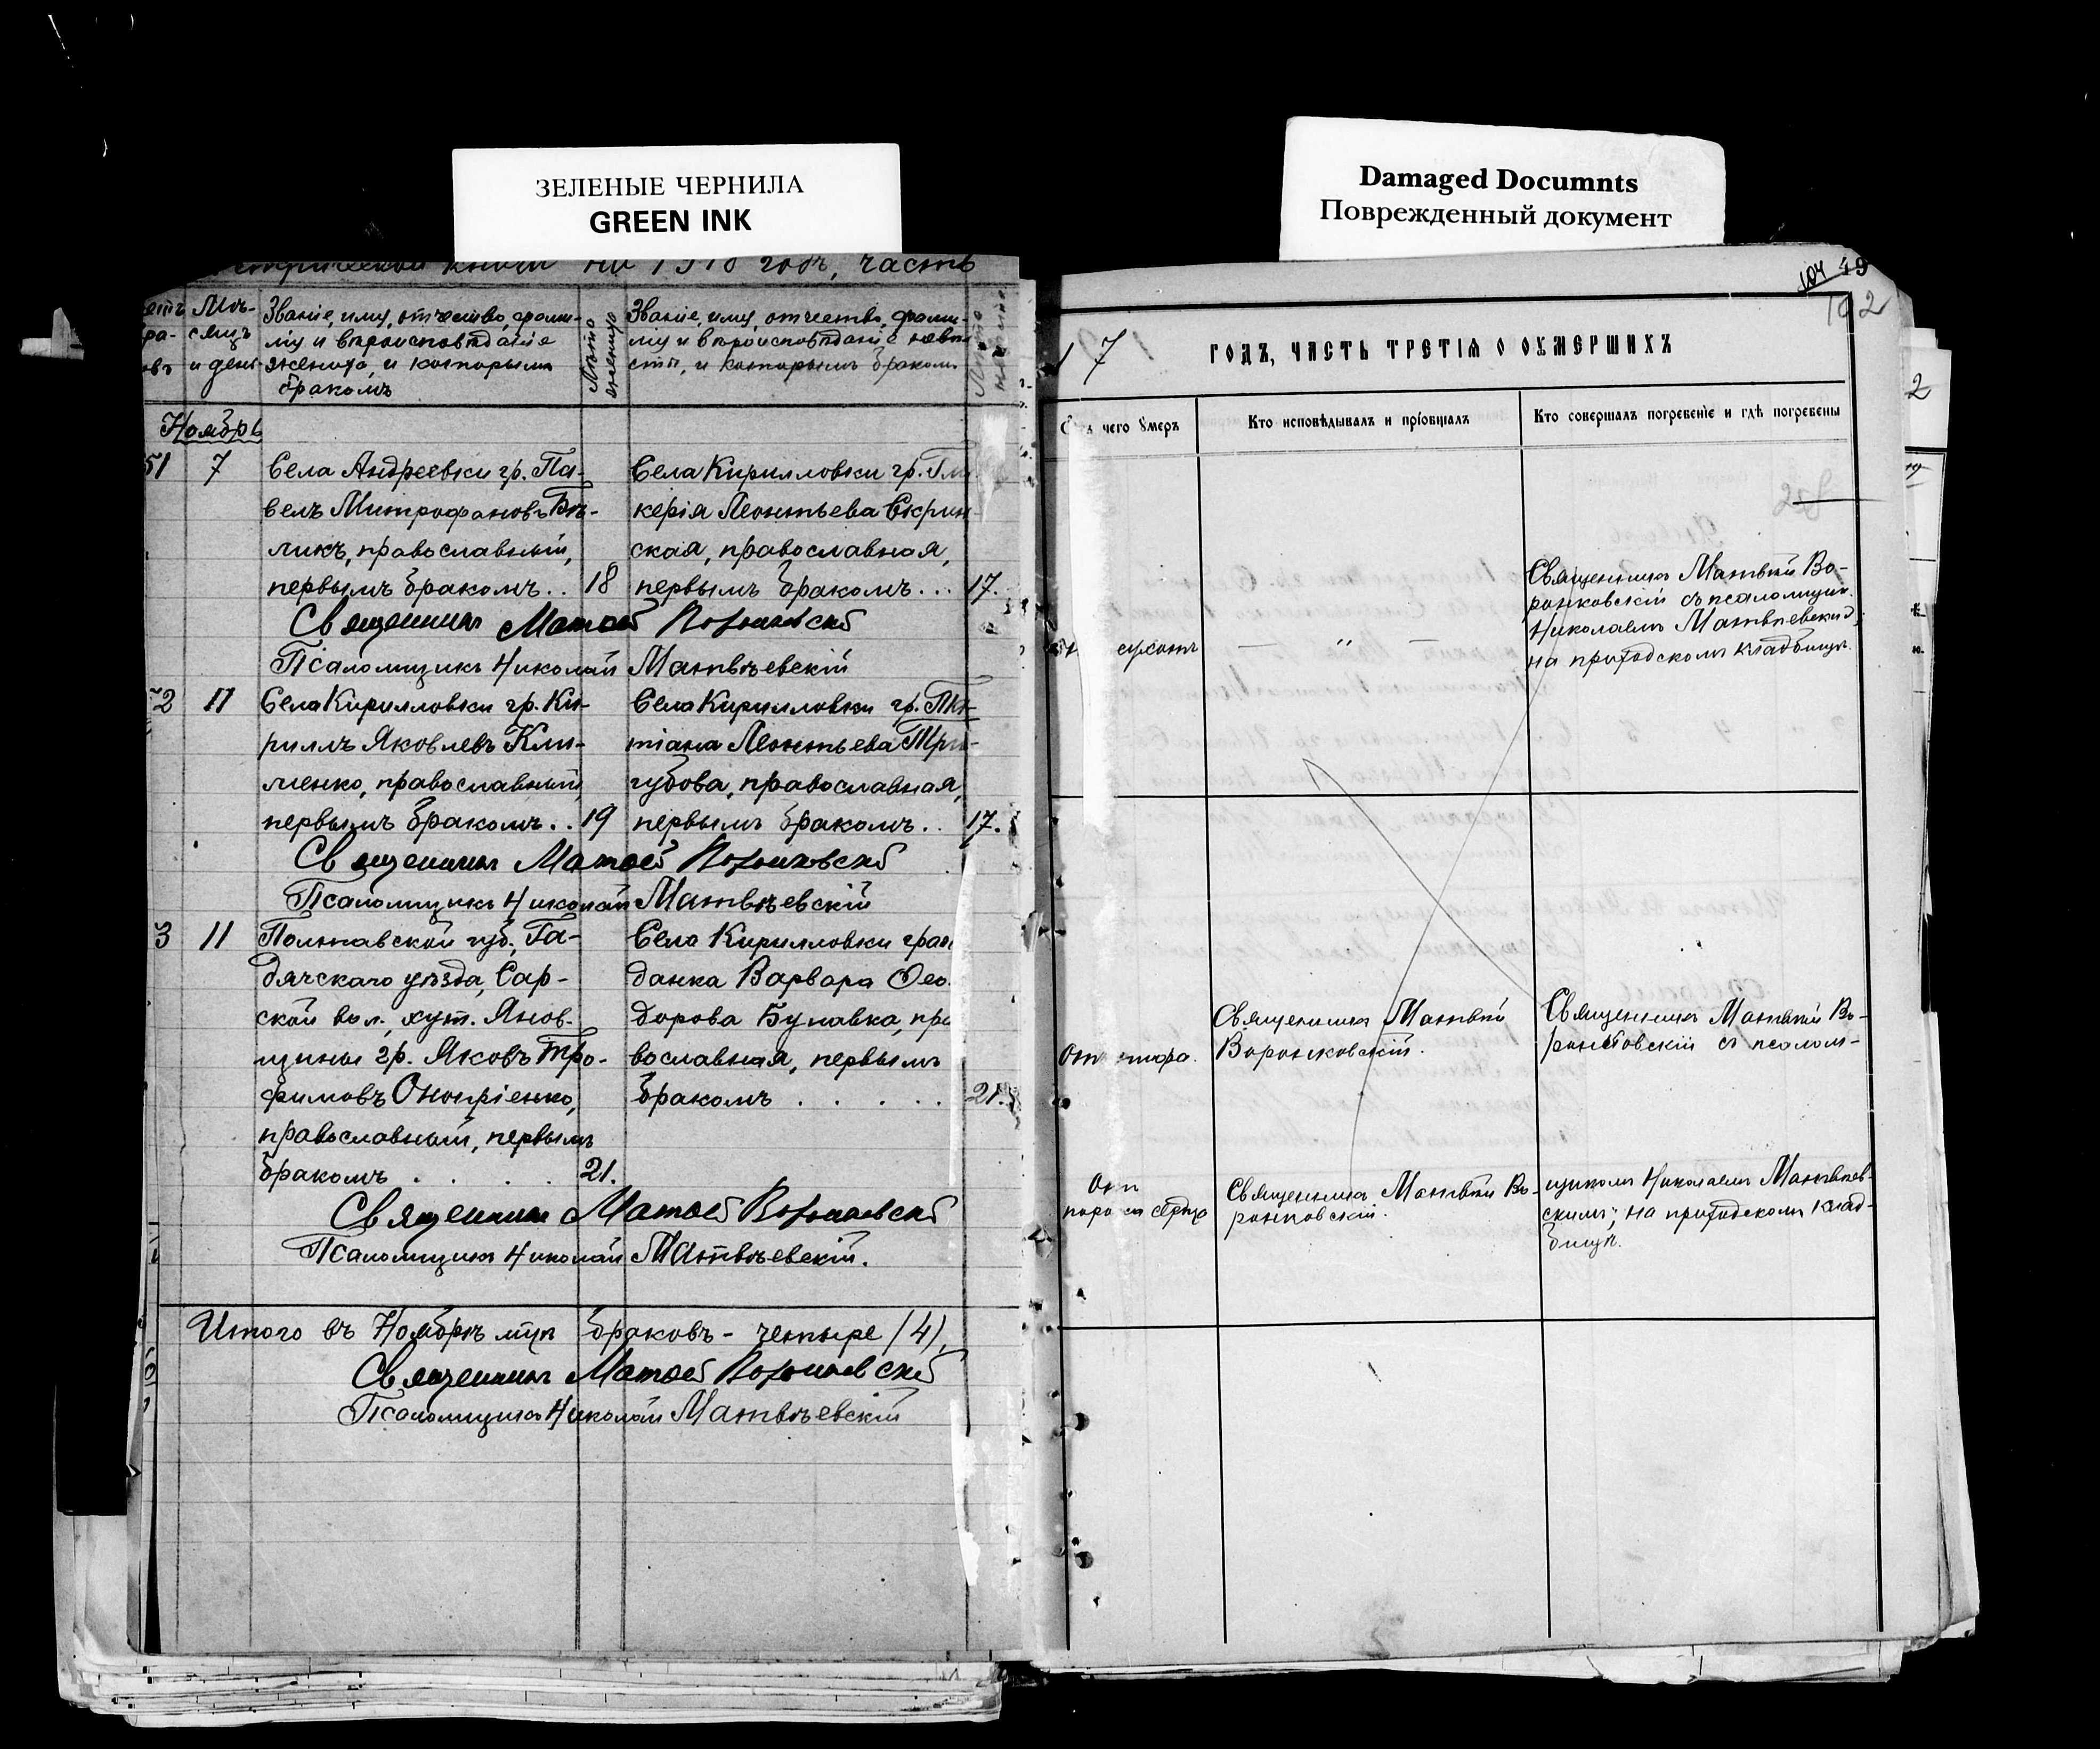 ЗЕЛЕНЫЕ ЧЕРНИЛА
GREEN INK
Damaged Documnts
Поврежденный документ
книги на 1918 годъ, часть
Мѣ-
сяцъ
и день
Званіе, имя, отчество, фами-
лія и вѣроисповѣданіе
жениха, и которымъ
бракомъ
Лѣта
жениха
Званіе, имя, отчество, фами-
лія и вѣроисповѣданіе невѣ
сты, и которымъ бракомъ
Ноябрь
51 7
Села Андреевки гр. Па-
велъ Митрофановъ Бѣ-
ликъ, православный,
первымъ бракомъ.. 18
Села Кирилловки гр. Гли
керія Леонтьева Скрин
ская, православная,
первымъ бракомъ... 17.
Священникъ Матвей Воронковскій
Псаломщикъ Николай Матвѣевскій
52 11
Села Кирилловки гр. Ки-
риллъ Яковлевъ Кли-
менко, православный,
первымъ бракомъ.. 19
Села Кирилловки гр. Та-
тіана Леонтьева Три-
губова, православная,
первымъ бракомъ.. 17.
Священникъ Матвей Воронковскій
Псаломщикъ Николай Матвѣевскій
3 11
Полтавской губ., Га-
дячскаго уѣзда, Сар-
ской вол., хут. Янов-
щины гр. Яковъ Тро-
фимовъ Оноприенко,
православный, первымъ
бракомъ . . . . 21.
Села Кирилловки граж
данка Варвара Ѳео-
дорова Булавка, пра
вославная, первымъ
бракомъ . . . . . 21.
Священникъ Матвей Воронковскій
Псаломщикъ Николай Матвѣевскій.
Итого въ Ноябрѣ м-цѣ браковъ - четыре (4).
Священникъ Матвей Воронковскій
Псаломщикъ Николай Матвѣевскій
104 49
102
1 7 ГОДЪ, ЧАСТЬ ТРЕТІЯ О ОУМЕРШИХЪ
чего умеръ
Кто исповѣдывалъ и пріобщалъ
Кто совершалъ погребеніе и гдѣ погребены
Священникъ Матвѣй Во-
ронковскій съ псаломщик.
Николаемъ Матвѣевскимъ,
на приходскомъ кладбищѣ.
— " —
Священникъ Матвѣй
Воронковскій.
Священникъ Матвѣй Во-
ронковскій съ псалом-
Отъ
порока сердца
Священникъ Матвѣй Во-
ронковскій.
щикомъ Николаемъ Матвѣев-
скимъ; на приходскомъ клад-
бищѣ.
2